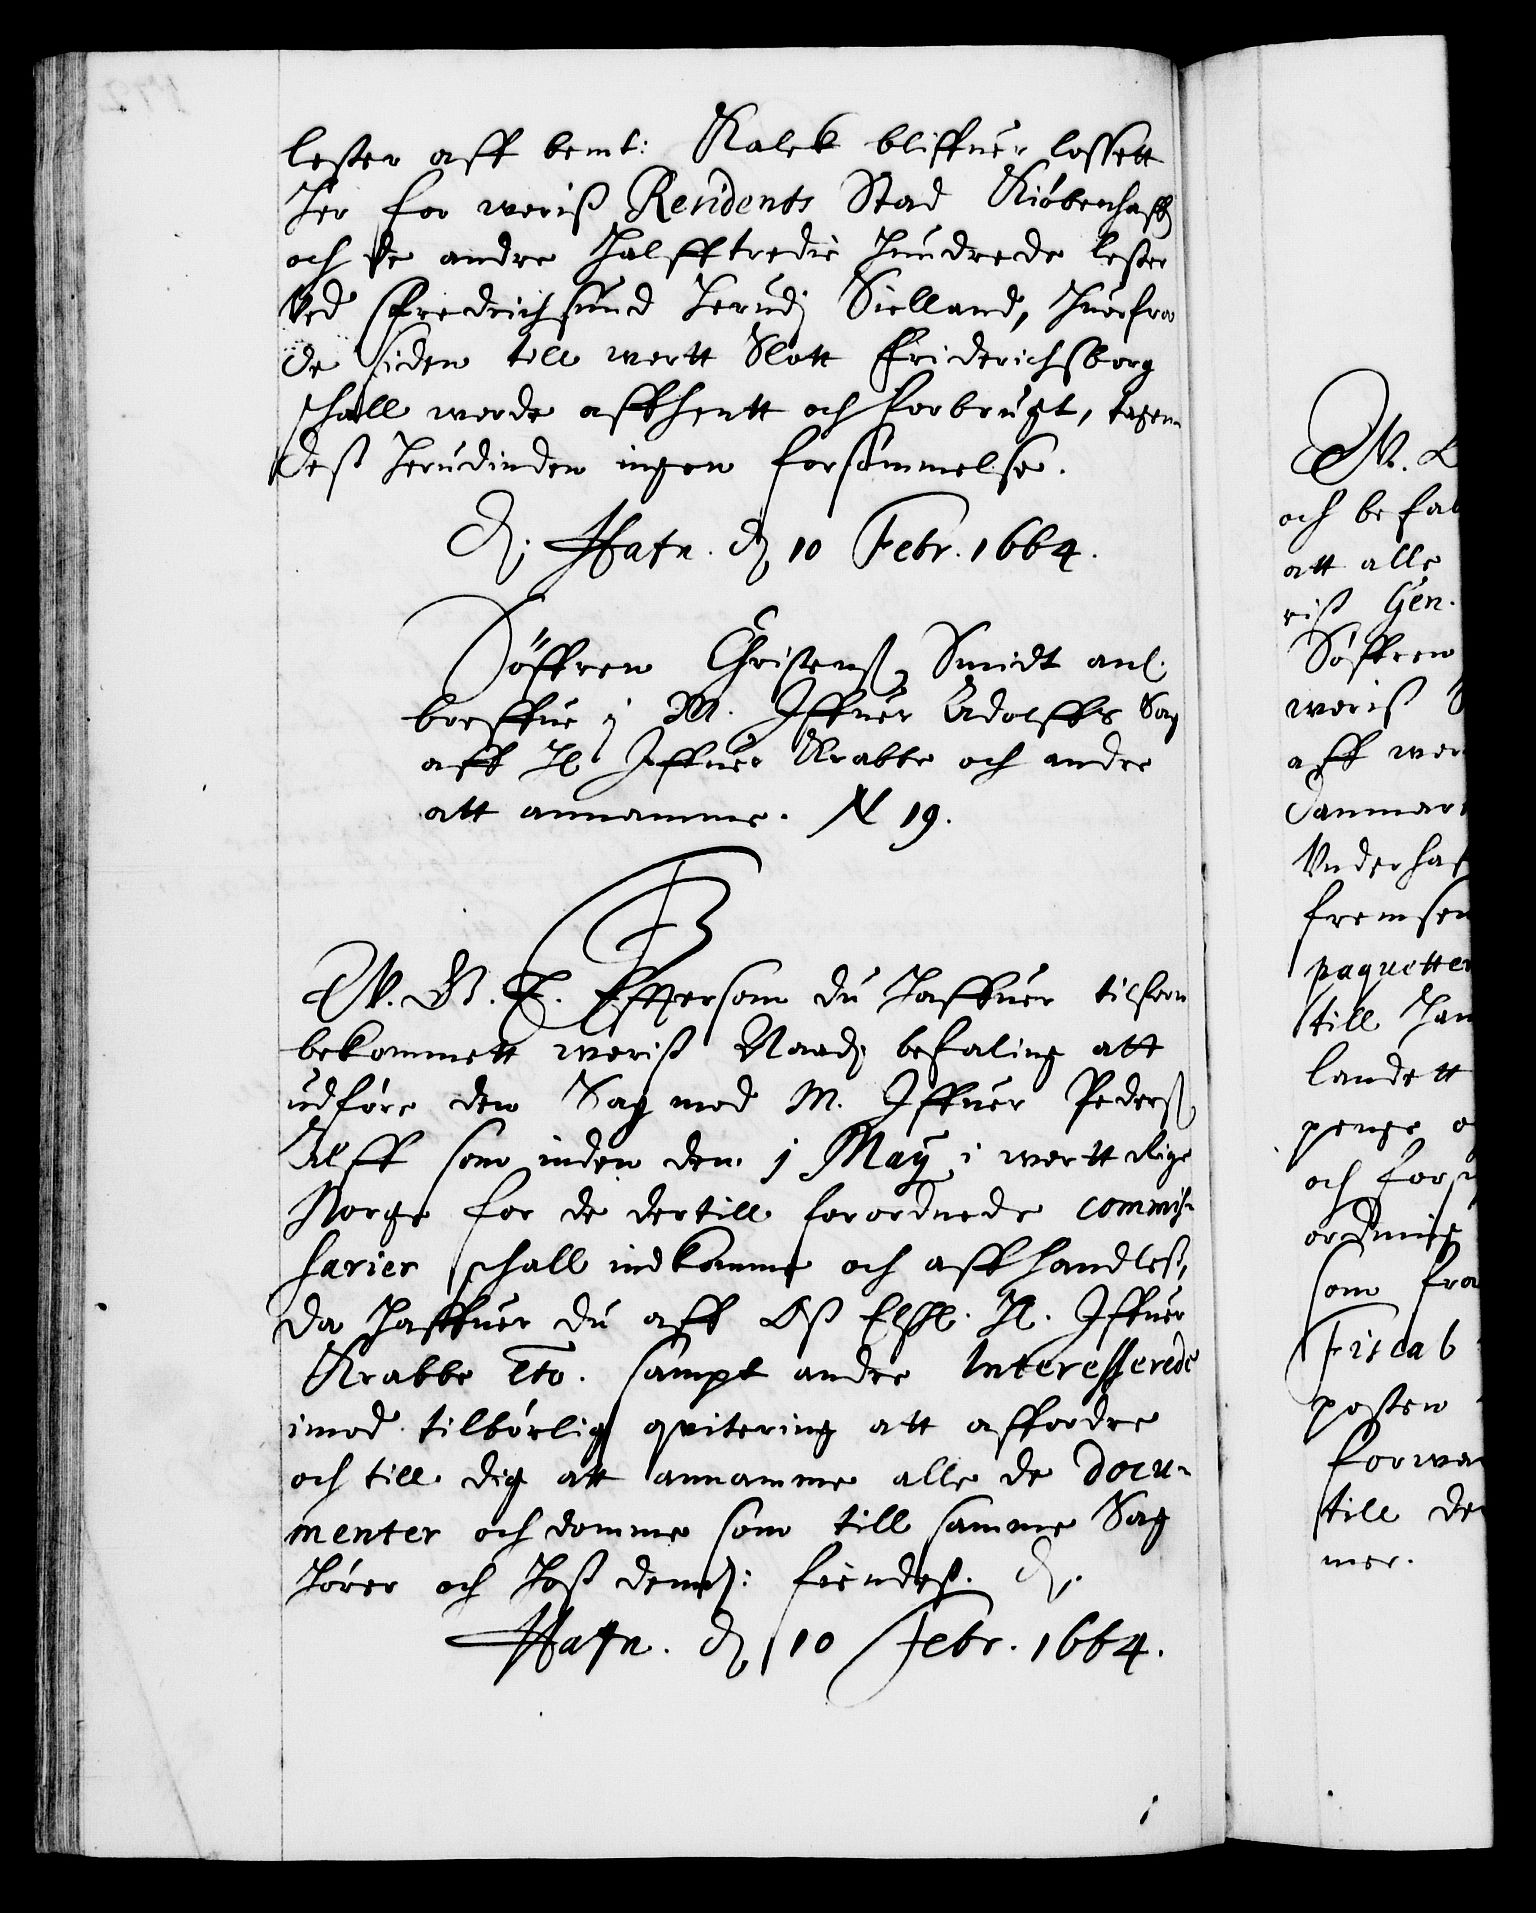 lester aff bemt: Kalck bliffuer lossett
her for woriß Residents Stad Kiöbenhaffn
och de andre halfftredie hundrede lester
Ved Fredrichsund herudj Sielland, huorfra
de siden till wortt Slott Friderichsborg
schall worde affhentt och forbrugt, tagen
deß herudinden ingen forsömmelse.
D. Hafn. d. 10 Febr. 1664.
Söffren Christenß Smidt anl.
breffue j M. Iffuer Adolffs Sag
aff H. Iffuer Krabbe och andre
att annamme. N 19.
F3
W. G. T. Efftersom du haffuer tilforn
bekommett woriß Naad. befaling att
udföre den Sag mod M. Iffuer Pederß
Alff som inden den 1 May i wortt Rige
Norge for de dertill forordnede commis-
sarier schall indkomme och affhandleß,
da haffuer du aff Oß Elschl. H. Iffuer
Krabbe etc. sampt andre Interesserede
imod tilbörlig qvitering att affordre
och till dig att annamme alle de docu-
menter och domme som till samme Sag
hörer och hoß dennem: findeß. D.
Hafn. d. 10 Febr. 1664.
och befal
att alle
riß Gen.
Söffren
woriß
aff wor
Danmar
Vnderhaf
fremsen
paquetter
till han
landett
penge o
och fors
ordning
som fra
Fiscal
posten
forwa
till de
mer.